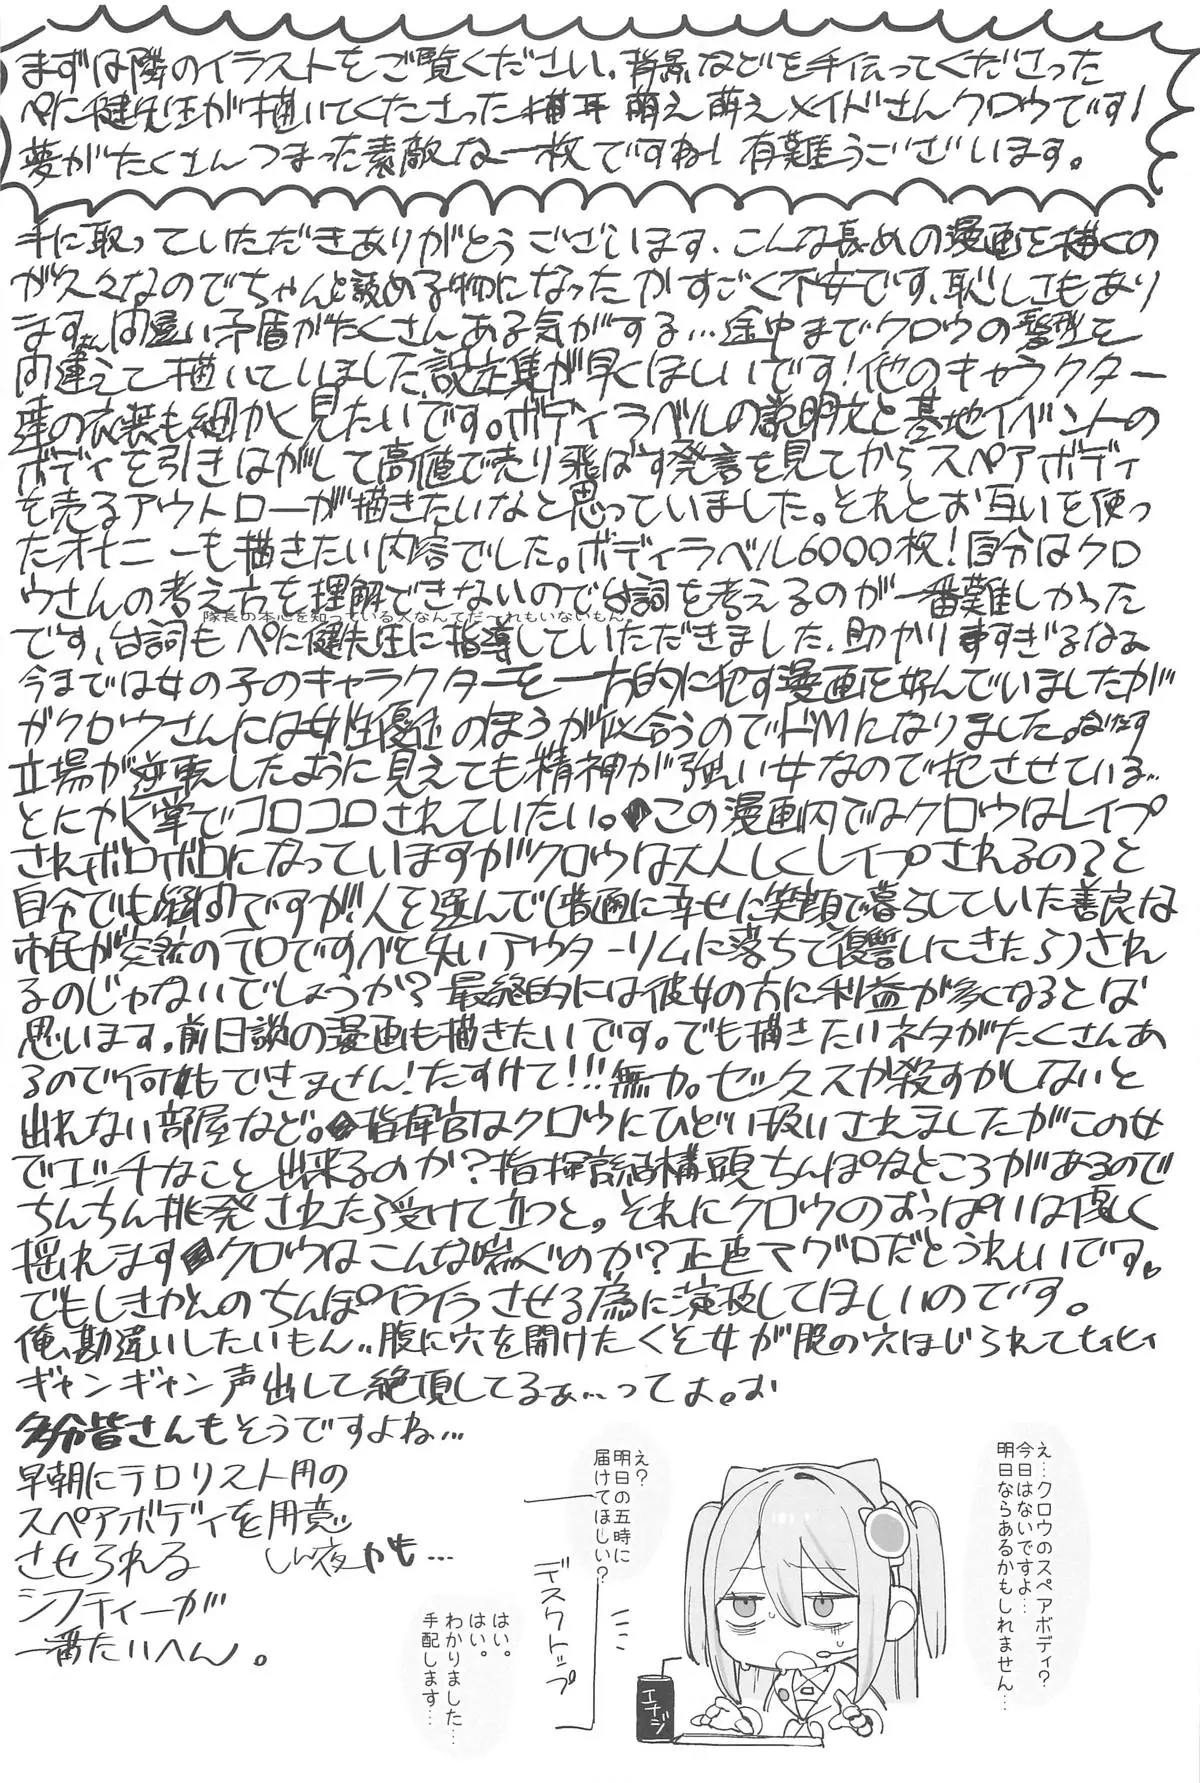 まずは隣のイラストをご覧ください。背景などを手伝ってくださった
ぺに健先生が描いてくださった猫耳 萌え萌えメイドさんクロウです!
夢がたくさんつまった素敵な一枚ですね! 有難うございます。
手に取っていただきありがとうございます、こんな長めの漫画を描くの
が久々なのでちゃんと読める物になったかすごく不安です、恥しさもあり
ます。間違い矛盾がたくさんある気がする…途中までクロウの髪型を
間違えて描いていました設定集が早くほしいです!他のキャラクター
達の衣装も細かく見たいです。ボディラベルの説明文と基地イベントの
ボディを引きはがして高値で売り飛ばす発言を見てからスペアボディ
を売るアウトローが描きたいなと思っていました。それとお互いを使っ
たオナニーも描きたい内容でした。ボディラベル6000枚!自分はクロ
ウさんの考え方を理解できないので台詞を考えるのが一番難しかった
隊長の本心を知っている人なんてだーれもいないもん。
です、台詞も ぺに健先生に指導していただきました、助かりますすぎるなぁ
今までは女の子のキャラクターを一方的に犯す漫画を好んでいましたが
がクロウさんには女性優位のほうが似合うのでドMになりました。
立場が逆転したように見えても精神が強い女なので犯させている…
とにかく掌でコロコロされていたい。この漫画内ではクロウはレイプ
されボロボロになっていますがクロウは大人しくレイプされるの?と
自分でも疑問ですが!人を選んで(普通に幸せに笑顔で暮らしていた善良な
市民が突然のテロですべてを失いアウターリムに落ちて復讐しにきたら)され
るのじゃないでしょうか?最終的には彼女の方に利益が多くなるとは
思います。前日談の漫画も描きたいです。でも描きたいネタがたくさんあ
るので何もできません!たすけて!!!無力。セックスか殺すかしないと
出れない部屋など。指揮官はクロウにひどい扱いされましたがこの女
でエッチなこと出来るのか?指揮官結構頭ちんぽなところがあるので
ちんちん挑発されたら受けて立つと。それにクロウのおっぱいは優しく
揺れます クロウはこんな喘ぐのか?正直マグロだとうれしいです。
でもしきかんのちんぽイライラさせる為に演技してほしいのです。
俺、勘違いしたいもん..腹に穴を開けたくそ女が股の穴ほじられてヒィヒィ
ギャンギャン声出して絶頂してるぁ…ってよ。
多分皆さんもそうですよね…
早朝にテロリスト用の
スペアボディを用意
させられる しん夜かも…
シフティーが
一番たいへん。
え…クロウのスペアボディ?
今日はないですよ…
明日ならあるかもしれません…
え?
明日の五時に
届けてほしい?
デスクトップ
はい。
はい。
わかりました…
手配します…
エナジ